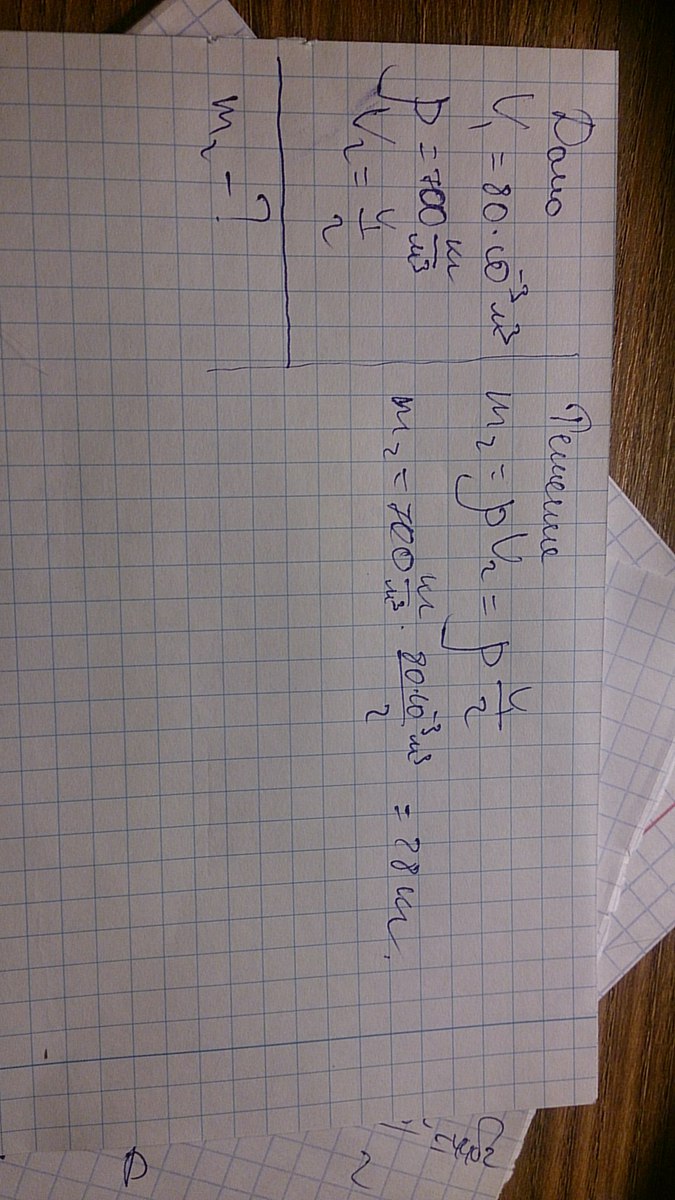 Дано
V₁ = 80·10⁻³ м³
ρ = 700 кг/м³
V₂ = V₁/2
m₂ - ?
Решение
m₂ = ρV₂ = ρ V₁/2
m₂ = 700 кг/м³ · 80·10⁻³ м³/2 = 28 кг.